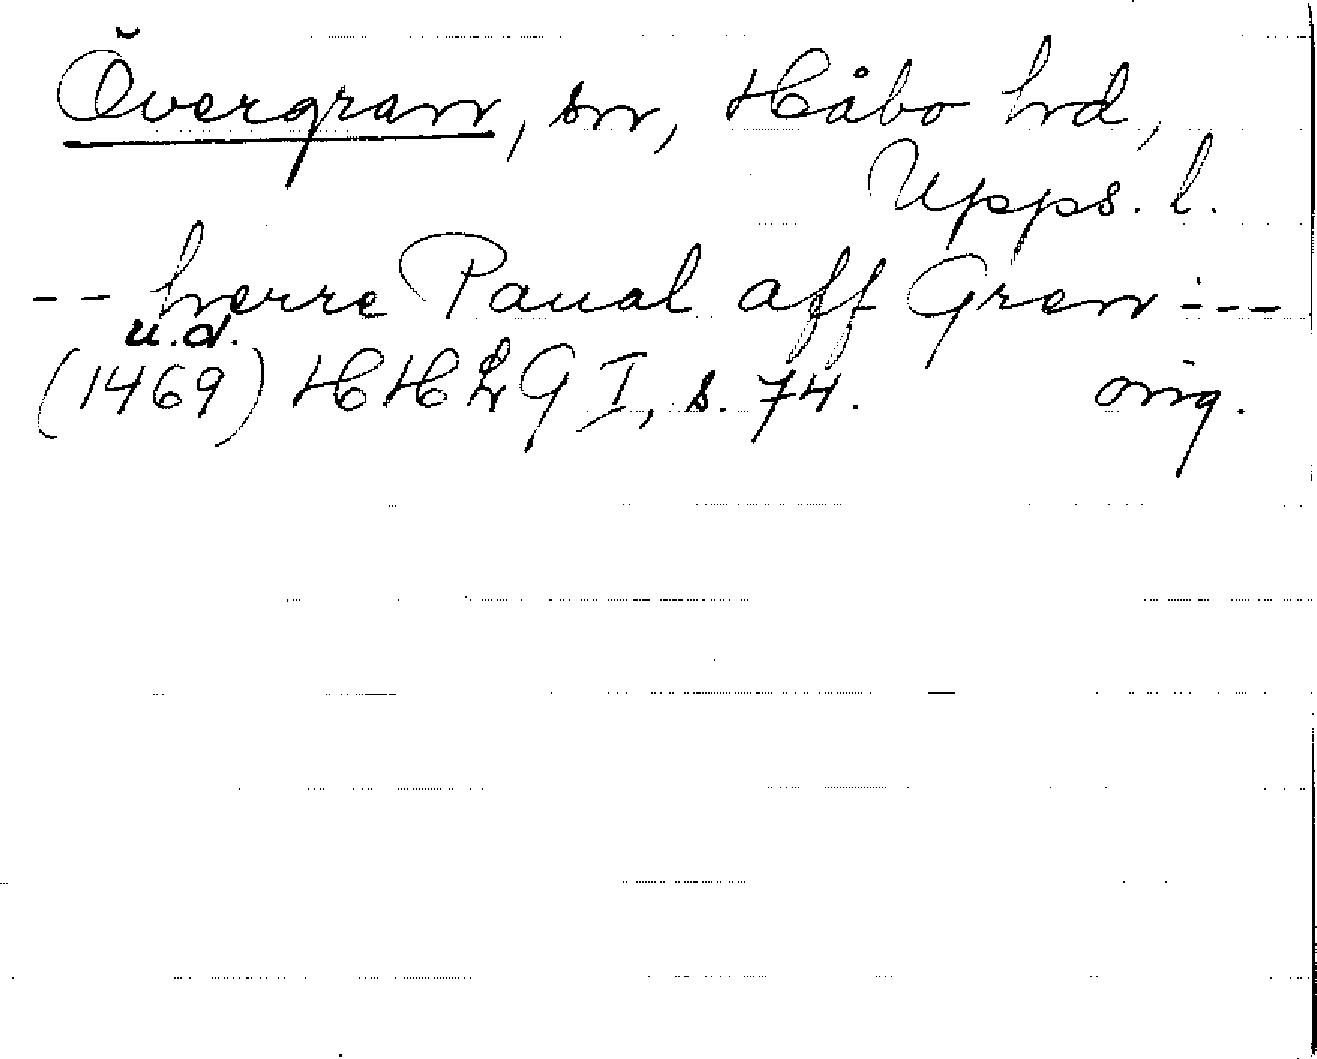 Övergran, sn, Håbo hd,
Upps. l.
-- herre Paual aff Gren ---
u.d.
(1469) HHLG I, s. 74. orig.